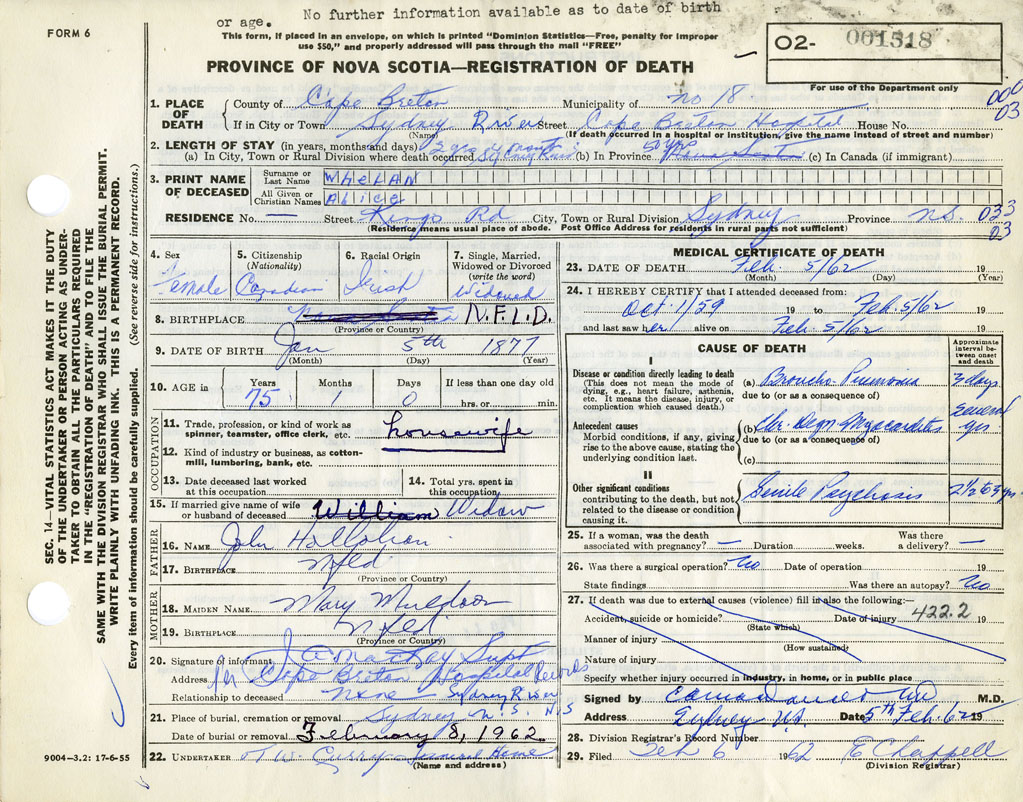 No further information available as to date of birth
or age.
FORM 6
This form, if placed in an envelope, on which is printed "Dominion Statistics—Free, penalty for improper
use $50," and properly addressed will pass through the mail "FREE"
O2- 001518
PROVINCE OF NOVA SCOTIA—REGISTRATION OF DEATH
For use of the Department only
000
03
1. PLACE OF DEATH { County of Cape Breton Municipality of no 18.
If in City or Town Sydney River Street Cape Breton Hospital House No.
(Name) (If death occurred in a hospital or institution, give the name instead of street and number)
2. LENGTH OF STAY (in years, months and days)
(a) In City, Town or Rural Division where death occurred (b) In Province (c) In Canada (if immigrant)
3. PRINT NAME OF DECEASED { Surname or Last Name WHELAN
All Given or Christian Names Alice
RESIDENCE No. — Street Kings Rd City, Town or Rural Division Sydney Province N.S. 033
03
(Residence means usual place of abode. Post Office Address for residents in rural parts not sufficient)
4. Sex Female
5. Citizenship (Nationality) Canadian
6. Racial Origin Irish
7. Single, Married, Widowed or Divorced (write the word) Widowed
8. BIRTHPLACE N.F.L.D.
(Province or Country)
9. DATE OF BIRTH Jan 5th 1877
(Month) (Day) (Year)
10. AGE in Years 75 Months 1 Days 0 If less than one day old
hrs. or min.
OCCUPATION
11. Trade, profession, or kind of work as spinner, teamster, office clerk, etc. housewife
12. Kind of industry or business, as cotton-mill, lumbering, bank, etc.
13. Date deceased last worked at this occupation
14. Total yrs. spent in this occupation
15. If married give name of wife or husband of deceased William Widow
FATHER
16. NAME John
17. BIRTHPLACE Nfld
(Province or Country)
MOTHER
18. MAIDEN NAME Mary Muldoon
19. BIRTHPLACE Nfld
(Province or Country)
20. Signature of informant Supt
Address per Cape Breton Hospital Records
Relationship to deceased None - Sydney River N.S
21. Place of burial, cremation or removal Sydney N.S.
Date of burial or removal February 8, 1962
22. UNDERTAKER T W Curry Funeral Home
(Name and address)
9004-3.2: 17-6-55
MEDICAL CERTIFICATE OF DEATH
23. DATE OF DEATH Feb. 5/62 19
(Month) (Day) (Year)
24. I HEREBY CERTIFY that I attended deceased from:
Oct 1/59 19 to Feb. 5/62 19
and last saw her alive on Feb. 5/62 19
CAUSE OF DEATH
Approximate interval between onset and death
I
Disease or condition directly leading to death
(This does not mean the mode of dying, e.g., heart failure, asthenia, etc. It means the disease, injury, or complication which caused death.)
(a) Broncho-Pneumonia 3 days
due to (or as a consequence of)
Antecedent causes
Morbid conditions, if any, giving rise to the above cause, stating the underlying condition last.
(b) Chr. Degn Myocarditis several yrs
due to (or as a consequence of)
(c)
II
Other significant conditions
contributing to the death, but not related to the disease or condition causing it.
Senile Psychosis 2½ to 3 yrs
25. If a woman, was the death associated with pregnancy? — Duration weeks. Was there a delivery? —
26. Was there a surgical operation? No Date of operation 19
State findings Was there an autopsy? No
27. If death was due to external causes (violence) fill in also the following:—
Accident, suicide or homicide? Date of injury 422.2 19
(State which)
Manner of injury
(How sustained)
Nature of injury
Specify whether injury occurred in industry, in home, or in public place
Signed by M.D.
Address Sydney N.S. Date 5th Feb/62 19
28. Division Registrar's Record Number
29. Filed Feb 6 1962 E Chappell
(Division Registrar)
SEC. 14—VITAL STATISTICS ACT MAKES IT THE DUTY
OF THE UNDERTAKER OR PERSON ACTING AS UNDER-
TAKER TO OBTAIN ALL THE PARTICULARS REQUIRED
IN THE "REGISTRATION OF DEATH" AND TO FILE THE
SAME WITH THE DIVISION REGISTRAR WHO SHALL ISSUE THE BURIAL PERMIT.
WRITE PLAINLY WITH UNFADING INK. THIS IS A PERMANENT RECORD.
Every item of information should be carefully supplied. (See reverse side for instructions.)